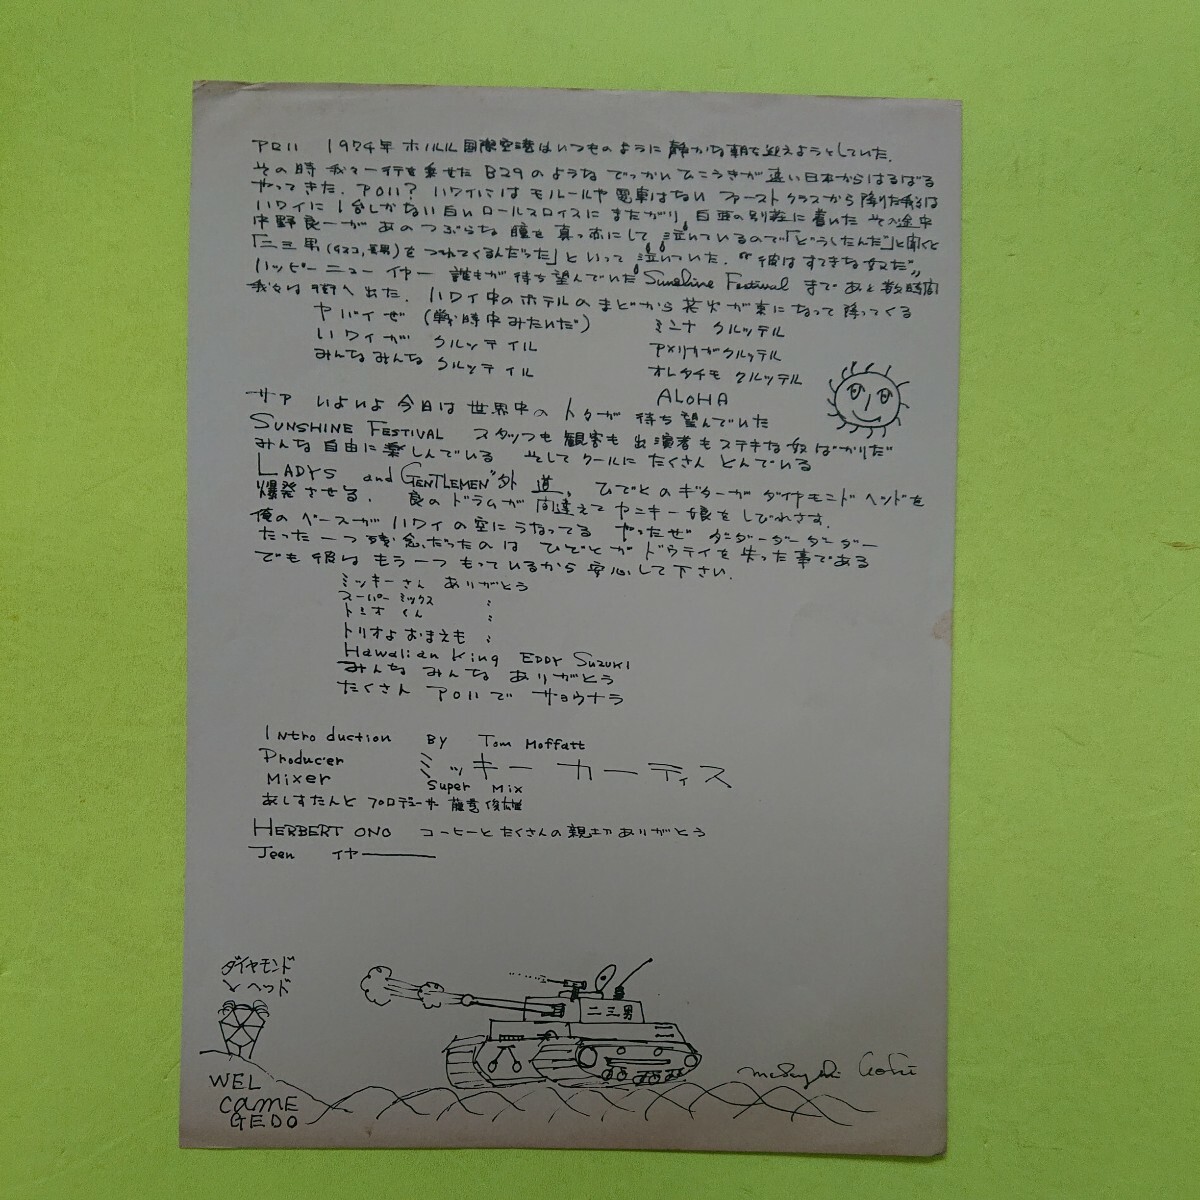 アロハ 1974年 ホノルル国際空港はいつものように静かな朝を迎えようとしていた.
その時 我々一行を乗せた B29のような でっかい ひこうきが 遠い日本からはるばる
やってきた. アロハ? ハワイにはモノレールや電車はない ファーストクラスから降りた我々は
ハワイに1台しかない白いロールスロイスにまたがり 白亜の別荘に着いた その途中
中野良一が あのつぶらな瞳を真っ赤にして 泣いているので「どうしたんだ」と聞くと
「二三男(長男)をつれてくるんだった」といって泣いていた. "彼はすてきな奴だ"
ハッピーニューイヤー 誰もが待ち望んでいた Sunshine Festival まであと数時間
我々は街へ出た. ハワイ中のホテルのまどから花火が束になって降ってくる
ヤバイぜ (戦時中みたいだ)
ハワイが クルッテイル
みんなみんな クルッテイル
ミンナ クルッテル
アメリカガクルッテル
オレタチモ クルッテル
ALOHA
サア いよいよ今日は世界中の 人々が 待ち望んでいた
SUNSHINE FESTIVAL スタッフも観客も出演者もステキな奴ばかりだ
みんな自由に楽しんでいる そしてクールにたくさん とんでいる
LADYS and GENTLEMEN "外道" ひでとのギターがダイヤモンドヘッドを
爆発させる. 良のドラムが間違えてヤンキー娘をしびれさす.
俺のベースがハワイの空にうなってる やったぜ ダンダーダーダーダー
たった一つ残念だったのは ひでとがドウテイを失った事である
でも彼はもう一つもっているから安心して下さい.
ミッキーさん ありがとう
スーパーミックス 〃
トミオくん 〃
トリオよおまえも 〃
Hawaiian King EDDY SUZUKI
みんなみんなありがとう
たくさん アロハで サヨウナラ
Introduction BY Tom Moffatt
Producer ミッキー カーティス
Mixer Super Mix
あしすたんと プロデューサー 俊雄
HERBERT ONO コーヒーとたくさんの親切ありがとう
Jeen イヤー
ダイヤモンド
ヘッド
二三男
WEL
CAME
GEDO
Masayuki Aoki